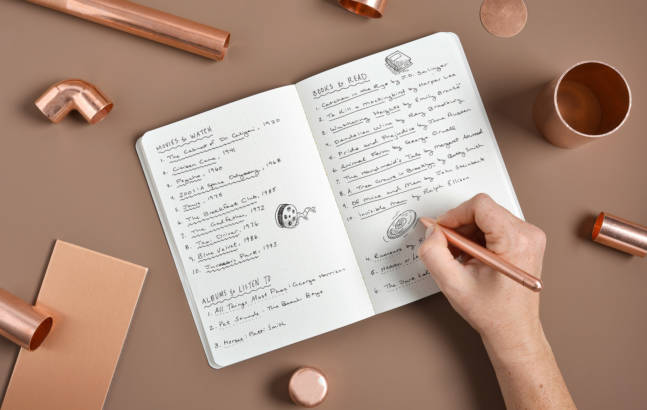 MOVIES to WATCH
1. The Cabinet of Dr. Caligari, 1920
2. Citizen Cane, 1941
3. Psycho, 1960
4. 2001: A Space Odyssey, 1968
5. Jaws, 1975
6. The Breakfast Club, 1985
7. The Godfather, 1972
8. Taxi Driver, 1976
9. Blue Velvet, 1986
10. Jurassic Park, 1993
ALBUMS to LISTEN TO
1. All Things Must Pass: George Harrison
2. Pet Sounds: The Beach Boys
3. Horses: Patti Smith
BOOKS to READ
1. Catcher in the Rye by J.D. Salinger
2. To Kill a Mockingbird by Harper Lee
3. Wuthering Heights by Emily Brontë
4. Dandelion Wine by Ray Bradbury
5. Pride and Prejudice by Jane Austen
6. Animal Farm by George Orwell
7. The Handmaid's Tale by Margaret Atwood
8. A Tree Grows in Brooklyn by Betty Smith
9. Of Mice and Men by John Steinbeck
10. Invisible Man by Ralph Ellison
4.
5.
6. The Dark